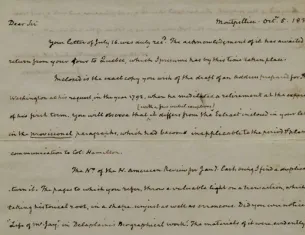 Dear Sir
Montpellier Octr 5. 183
Your letter of July 1 was duly recd. The acknowledgment of it has awaited
return from your Tour to Quebec, which I presume has by this time taken place.
Inclosed is the exact copy you wish of the draft of an address prepared for P
Washington at his request in the year 1792, when he meditated a retirement at the expira
of his first term. You will observe that it differs from the
in the provisional paragraphs, which had become inapplicable to the period & plan
communication to Col: Hamilton.
The No. of the N. American Review for Jany. I find a duplica
turn it. The pages to which you refer, throw a valuable light on a transaction, which
taking historical root, in a shape unjust as well as erroneous. Did you ever notice
"Life of Mr Jay" in Delaplaine's Biographical work. The materials of it were evidently